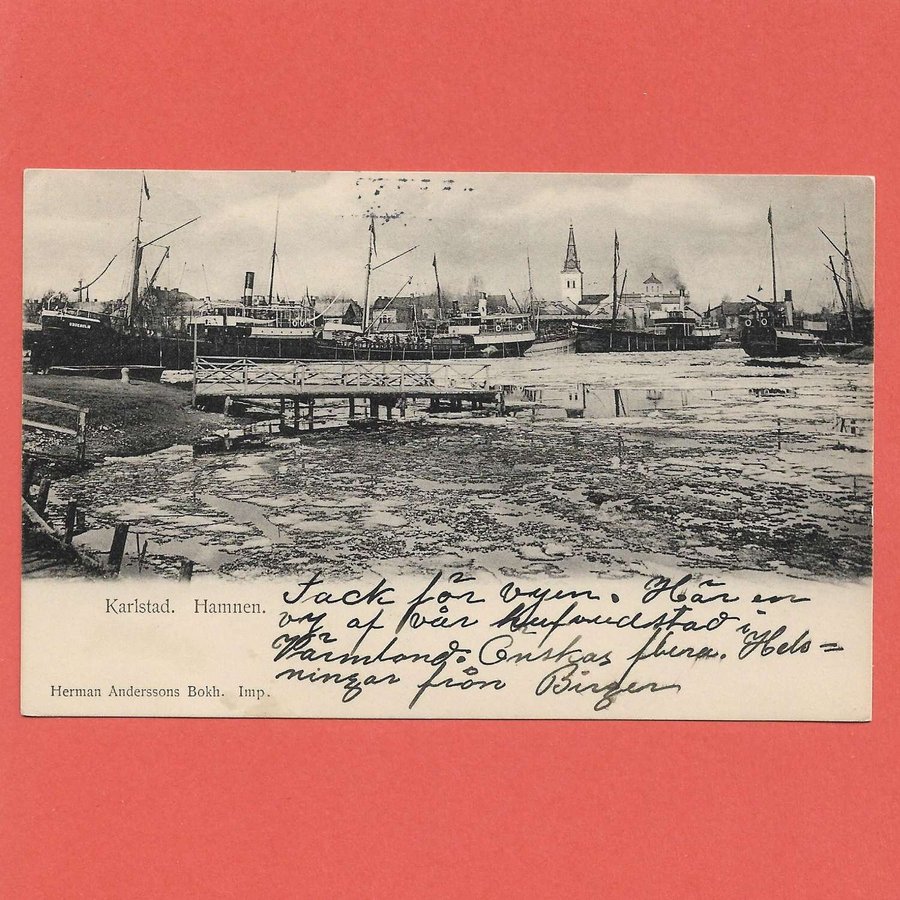 Karlstad. Hamnen.
Tack för vyen. Här en
vy af vår hufvudstad i
Värmland. Önskas flera. Hels=
ningar från Birger
Herman Anderssons Bokh. Imp.